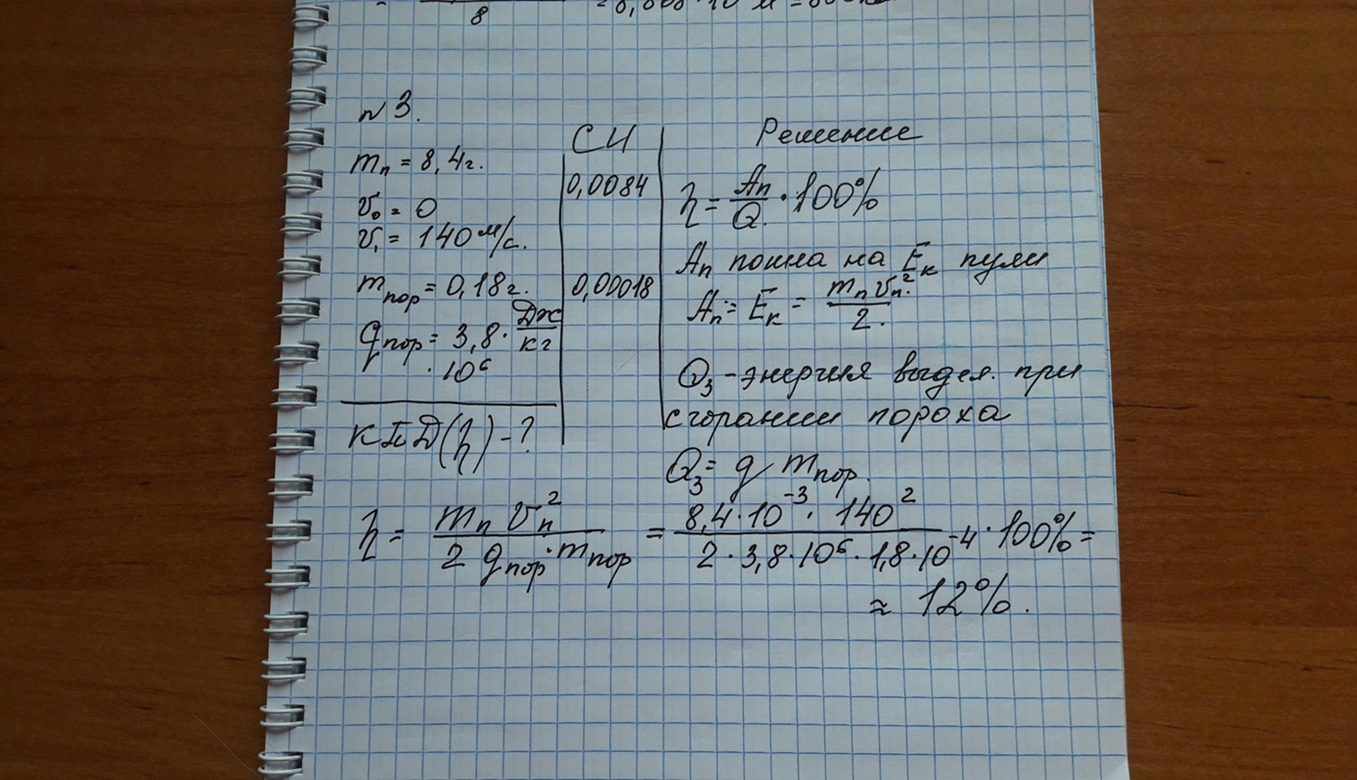 8
N 3.
mп = 8,4г.
v₀ = 0
v₁ = 140 м/с.
mпор = 0,18г.
qпор = 3,8 · Дж/кг
· 10⁶
КПД(η) - ?
СИ
0,0084
0,00018
Решение
η = Aп/Q · 100%
Aп пошла на Eк пули
Aп = Eк = mп vп²/2.
Q₃ - энергия выдел. при
сгорании пороха
Q₃ = q mпор.
η = mп vп² / 2 qпор · mпор = 8,4 · 10⁻³ · 140² / 2 · 3,8 · 10⁶ · 1,8 · 10⁻⁴ · 100% =
≈ 12%.